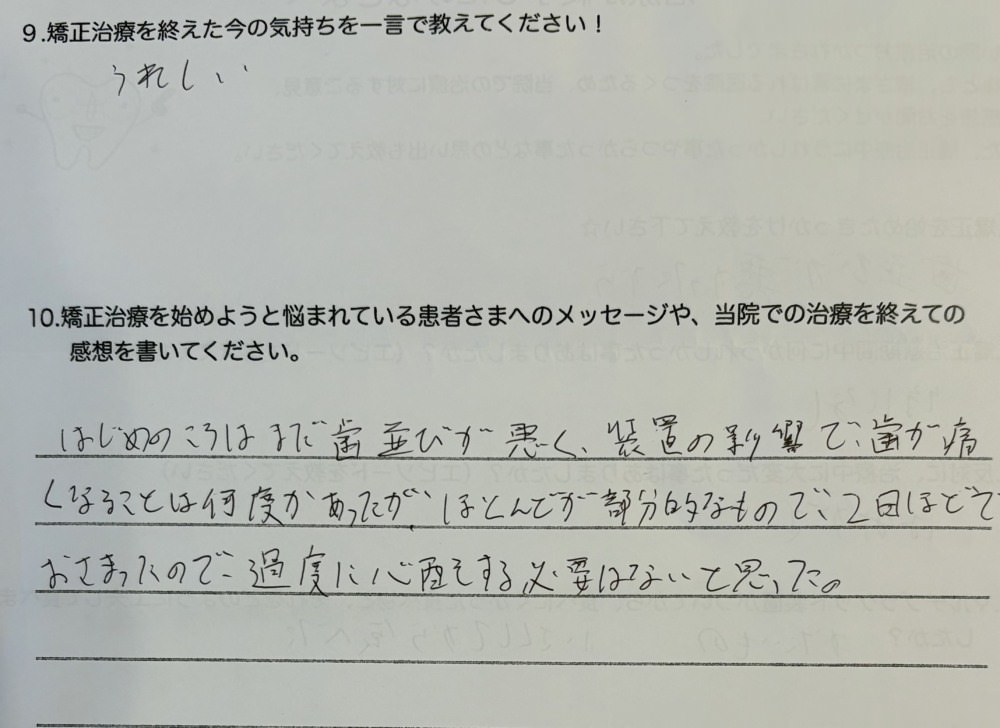 9.矯正治療を終えた今の気持ちを一言で教えてください！
うれしい
10.矯正治療を始めようと悩まれている患者さまへのメッセージや、当院での治療を終えての
感想を書いてください。
はじめのころはまだ歯並びが悪く、装置の影響で、歯が痛
くなることは何度かあったが、ほとんどが部分的なもので、2日ほどで
おさまったので、過度に心配をする必要はないと思った。